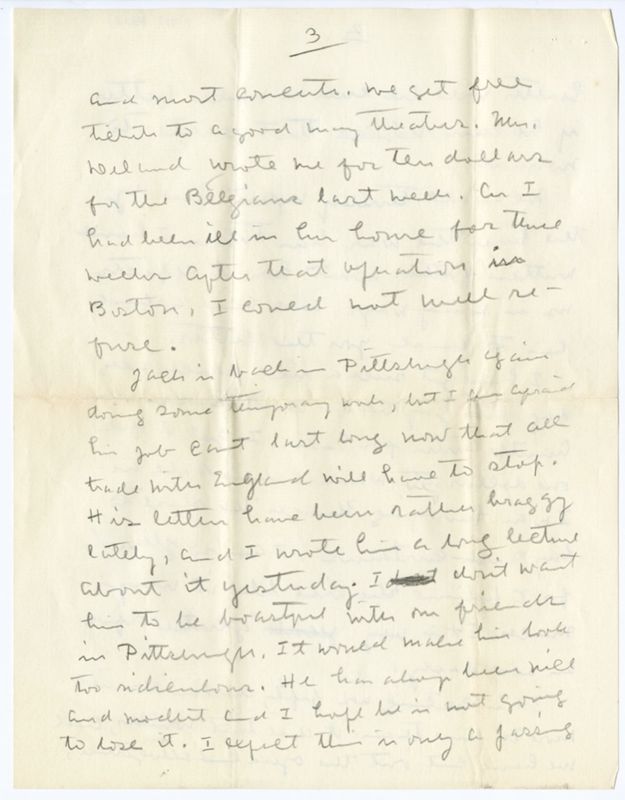 3
and most concerts. We get free
tickets to a good many theatres. Mrs.
Deland wrote me for ten dollars
for the Belgians last week. As I
had been ill in her home for three
weeks after that operation in
Boston, I could not well re-
fuse.
Jack is back in Pittsburgh again
doing some temporary work, but I am afraid
his job can't last long now that all
trade with England will have to stop.
His letters have been rather braggy
lately, and I wrote him a long lecture
about it yesterday. I don't want
him to be boastful with our friends
in Pittsburgh. It would make him look
too ridiculous. He has always been nice
and modest and I hope he is not going
to lose it. I expect this is only a passing